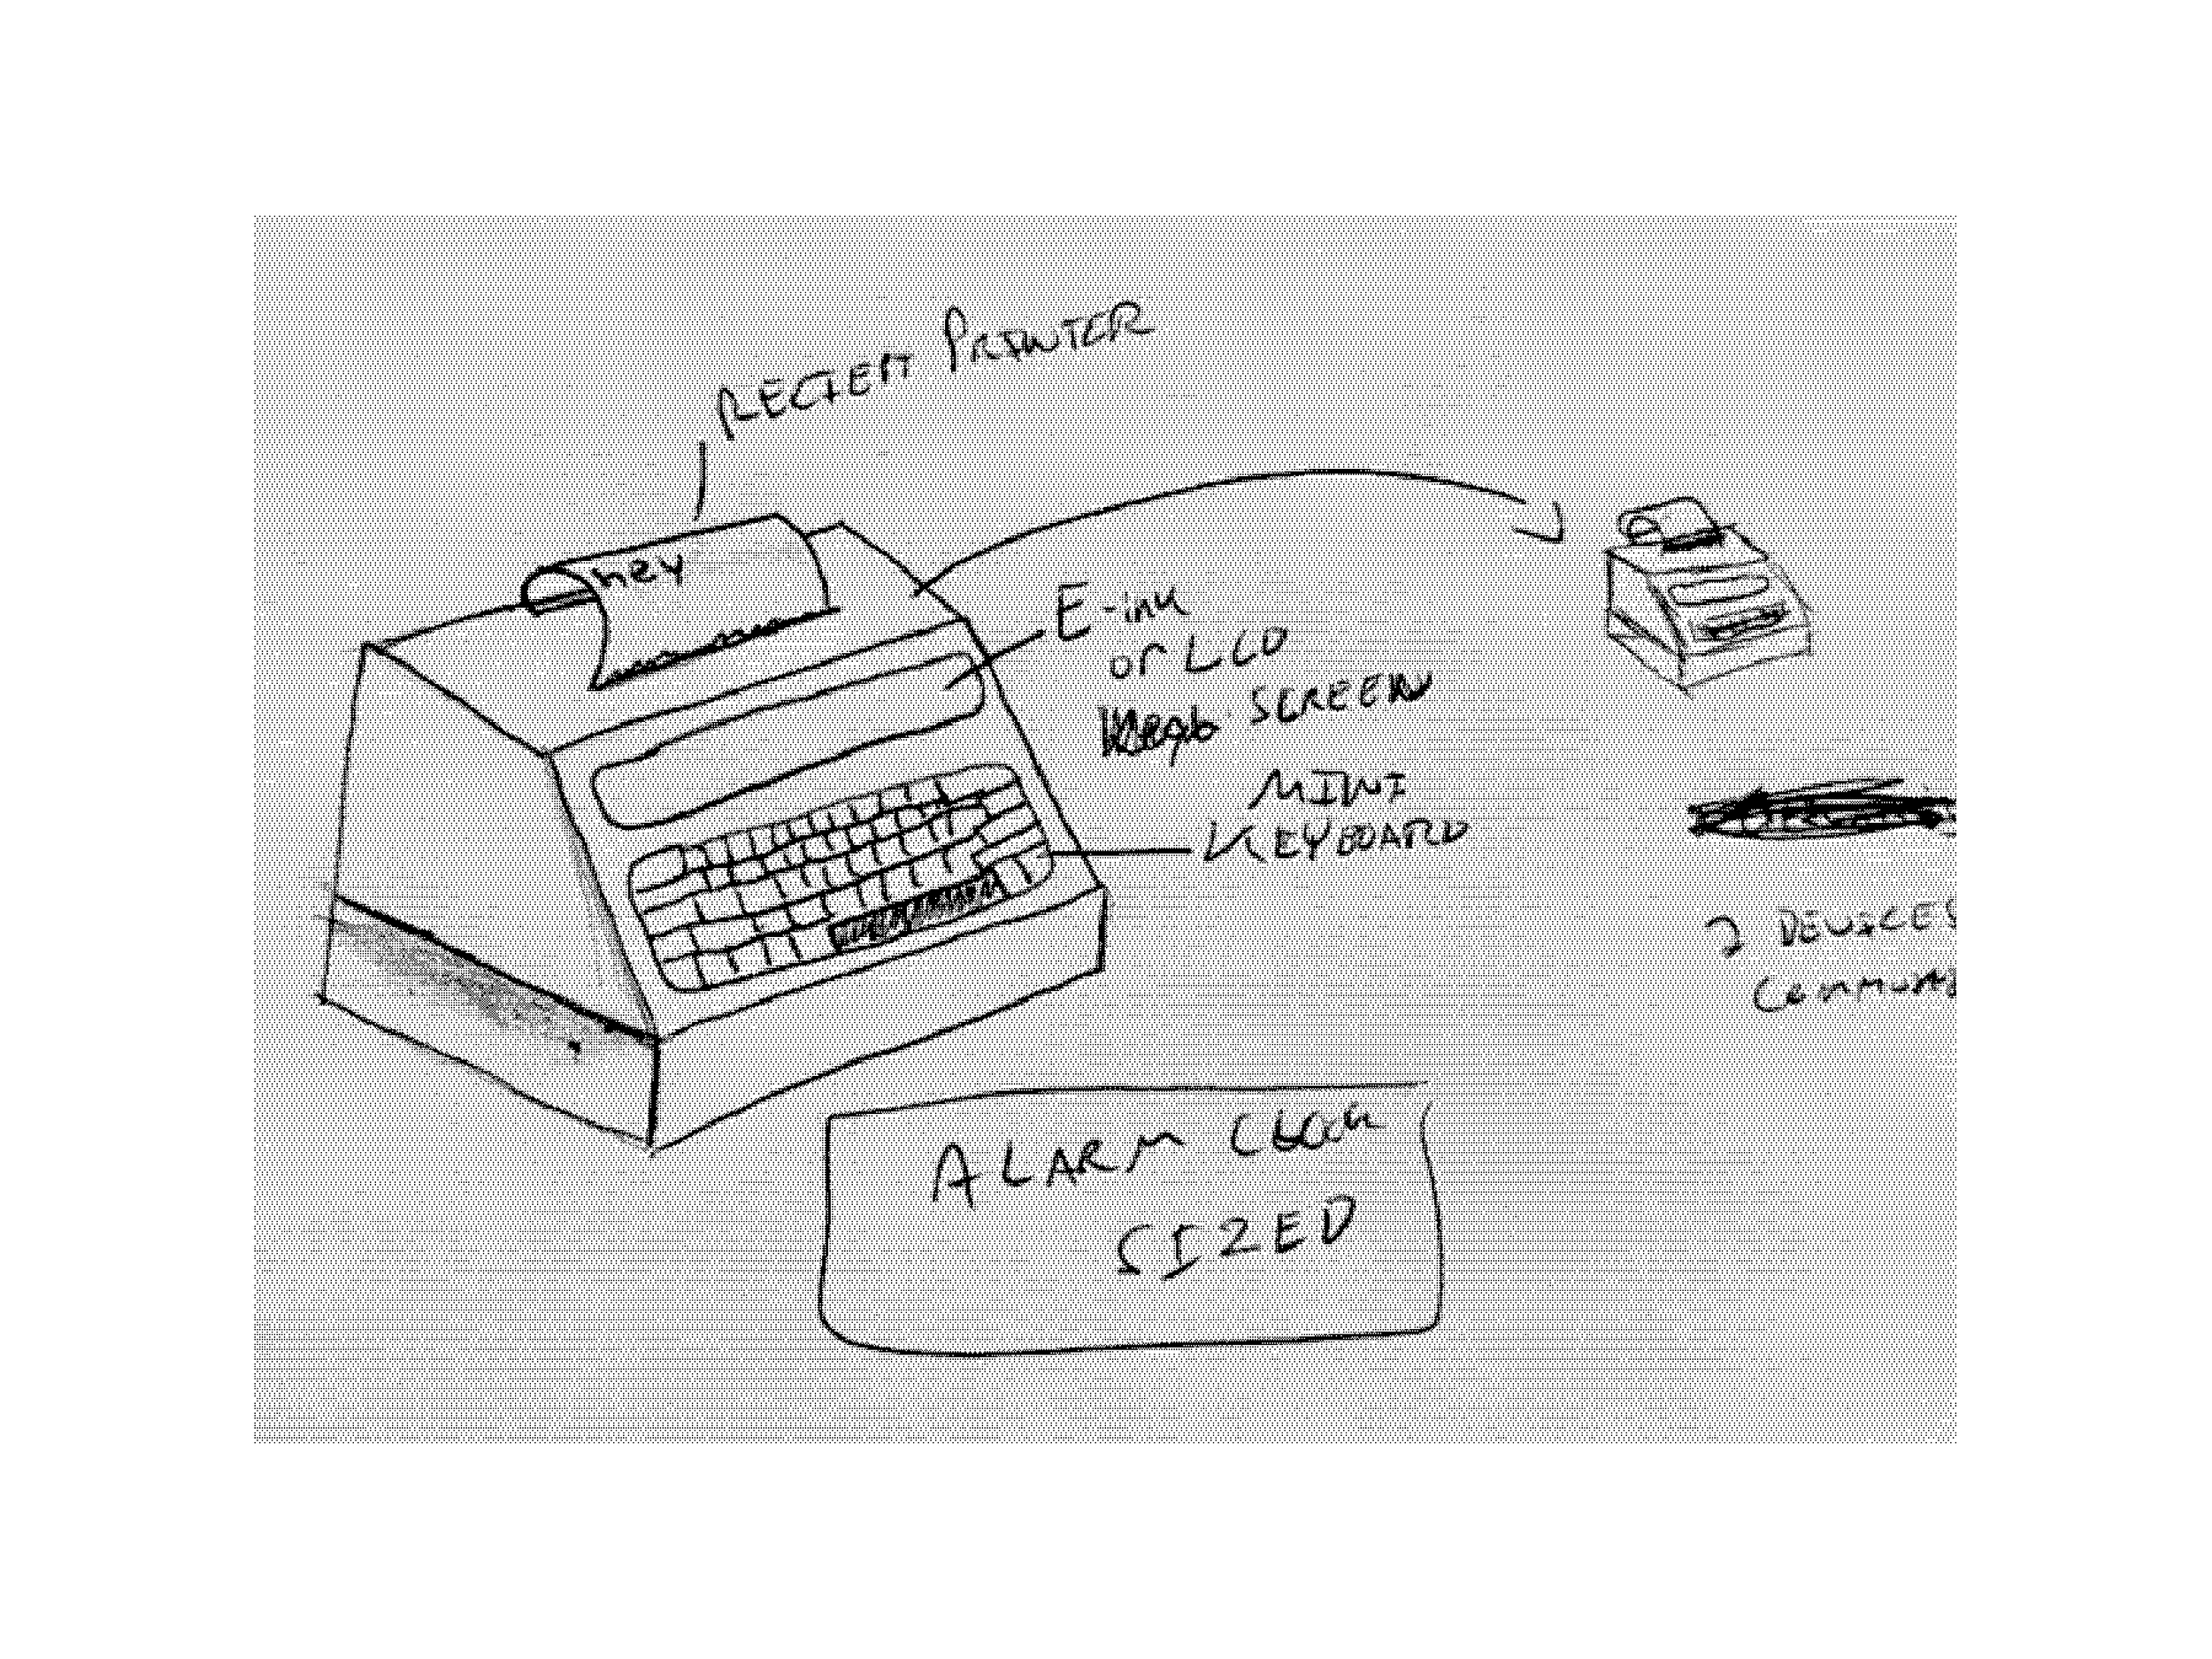 RECIEPT PRINTER
hey
E-ink
or LCD
SCREEN
MINI
KEYBOARD
2 DEVICES
ALARM CLOCK
SIZED